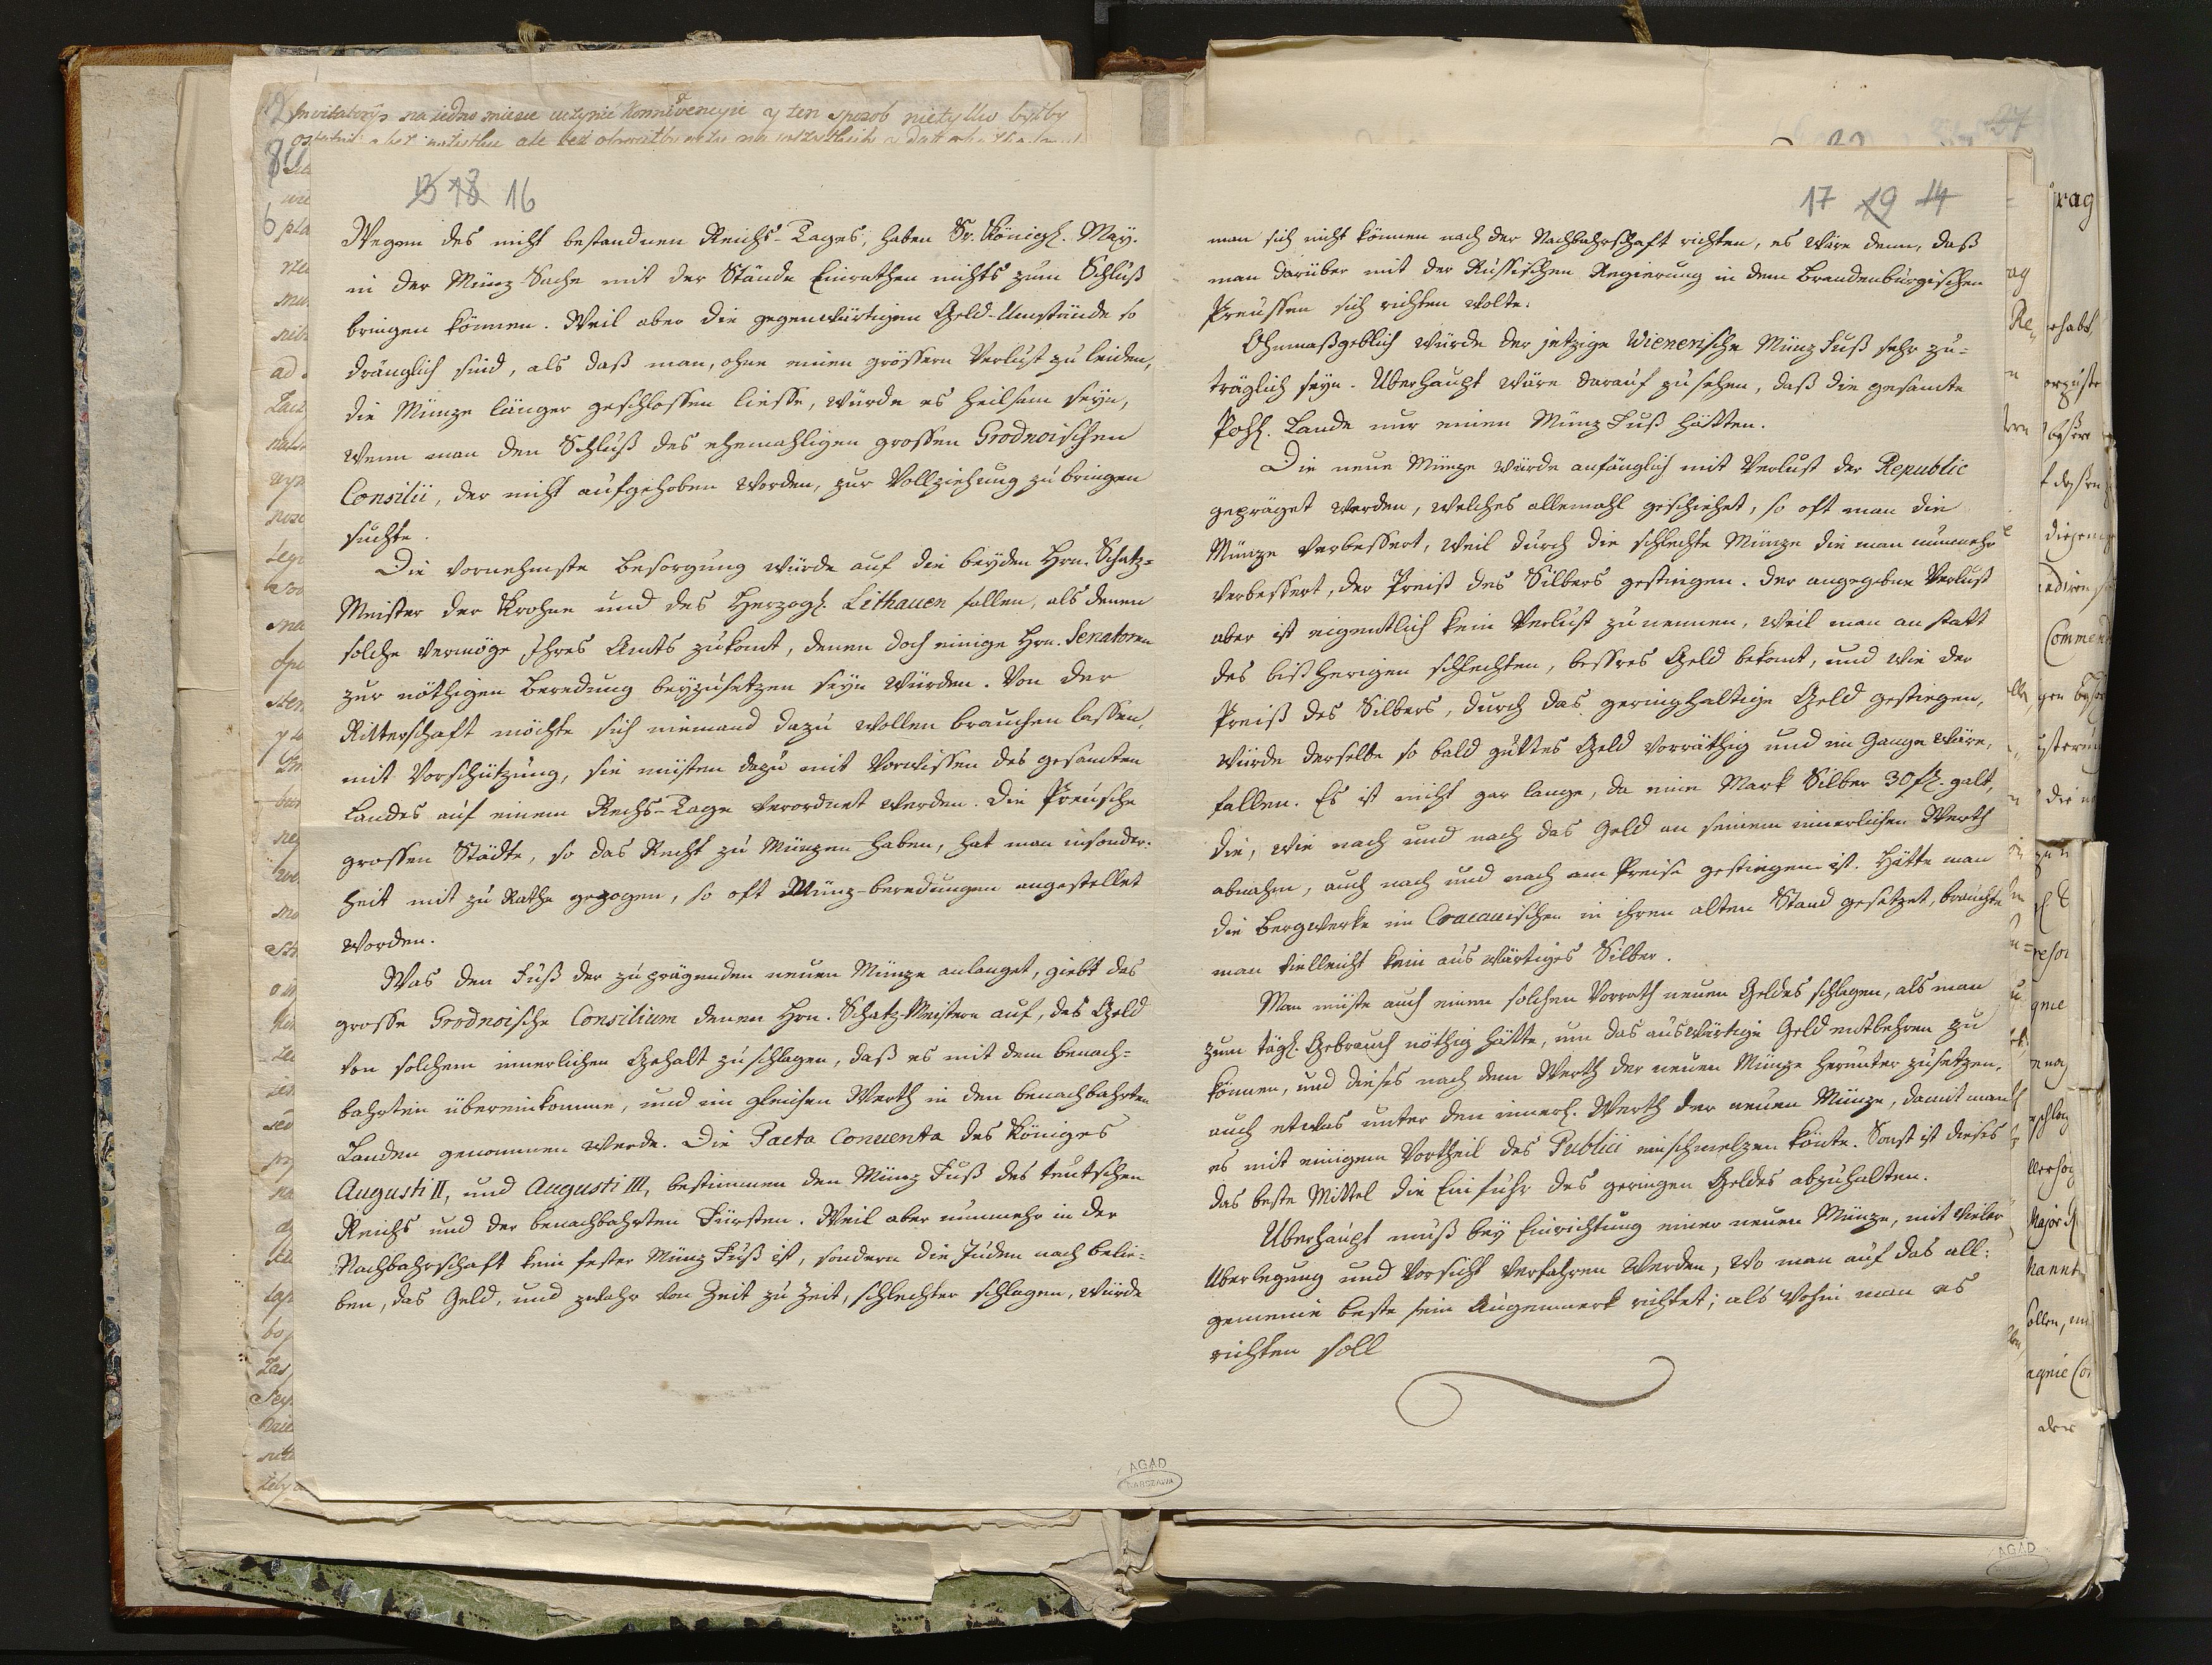 13 18 16
Wegen des nicht bestandnen Reichs-Tages, haben Sr. Königl. May.
in der Münz-Sache mit der Stände Einrathen nichts zum Schluß
bringen können. Weil aber die gegenwärtigen Geld-Umstände so
dränglich sind, als daß man, ohne einen grössern Verlust zu leiden,
die Münze länger geschlossen liesse, würde es heilsam seyn,
wenn man den Schluß des ehemahligen grossen Grodnoischen
Consilii, der nicht aufgehoben worden, zur Vollziehung zu bringen
suchte.
Die vornehmste Besorgung würde auf die beyden Hrn. Schatz=
Meister der Krohne und des Herzogl. Lithauen fallen, als denen
solche vermöge Ihres Amts zukomt, denen doch einige Hrn. Senatoren
zur nöthigen Beredung beyzusetzen seyn würden. Von der
Ritterschaft möchte sich niemand dazu wollen brauchen lassen,
mit Vorschützung, sie müsten dazu mit Vorwissen des gesamten
Landes auf einem Rechs-Tage verordnet werden. Die Preusche
grossen Städte, so das Recht zu Münzen haben, hat man insonder-
heit mit zu Rathe gezogen, so oft Münz-beredungen angestellet
worden.
Was den Fuß der zu prägenden neuen Münze anlanget, giebt das
grosse Grodnoische Consilium denen Hrn. Schatz-Meistern auf, das Geld
von solchem innerlichen Gehalt zu schlagen, daß es mit dem benach=
bahrten übereinkomme, und im gleichen Werth in den benachbahrten
Landen genommen werde. Die Pacta Conventa des Königes
Augusti II, und Augusti III, bestimmen den Münz Fuß des teutschen
Reichs und der benachbahrten Fürsten. Weil aber nunmehr in der
Nachbahrschaft kein fester Münz Fuß ist, sondern die Juden nach belie-
ben, das Geld, und zwahr von Zeit zu Zeit, schlechter schlagen, würde
17 19 14
man sich nicht können nach der Nachbahrschaft richten, es wäre denn, daß
man darüber mit der Russischen Regierung in dem Brandenbürgischen
Preussen sich richten wolte.
Ohnmaßgeblich würde der jetzige Wienerische Münz Fuß sehr zu=
träglich seyn. Überhaupt wäre darauf zu sehen, daß die gesamte
Pohl. Lande nur einen Münz Fuß hätten.
Die neue Münze würde anfänglich mit Verlust der Republic
gepräget werden, welches allemahl geschiehet, so oft man die
Münze verbessert, weil durch die schlechte Münze die man nunmehr
verbessert, der Preiß des Silbers gestiegen. Der angegebne Verlust
aber ist eigentlich kein Verlust zu nennen, weil man an statt
des bißherigen schlechten, bessres Geld bekomt, und wie der
Preiß des Silbers, durch das geringhaltige Geld gestiegen,
würde derselbe so bald guttes Geld vorräthig und im Gange wäre,
fallen. Es ist nicht gar lange, da eine Mark Silber 30 fl. galt,
die, wie nach und nach das Geld an seinem innerlichen Werth
abnahm, auch nach und nach am Preise gestiegen ist. Hätte man
die Bergwerke im Cracauischen in ihren alten Stand gesetzet, brauchte
man vielleicht kein auswärtiges Silber.
Man müste auch einen solchen Vorrath neuen Geldes schlagen, als man
zum tägl. Gebrauch nöthig hätte, um das auswärtige Geld entbehren zu
können, und dieses nach dem Werth der neuen Münze herunter zusetzen,
auch etwas unter den innerl. Werth der neuen Münze, damit man
es mit einigem Vortheil des Publici einschmelzen könte. Sonst ist dieses
das beste Mittel die Einfuhr des geringen Geldes abzuhalten.
Uberhaupt muß bey Einrichtung einer neuen Münze, mit vieler
Uberlegung und Vorsicht verfahren werden, wo man auf das all-
gemeine beste sein Augenmerk richtet; als wohin man es
richten soll
AGAD
WARSZAWA
AGAD